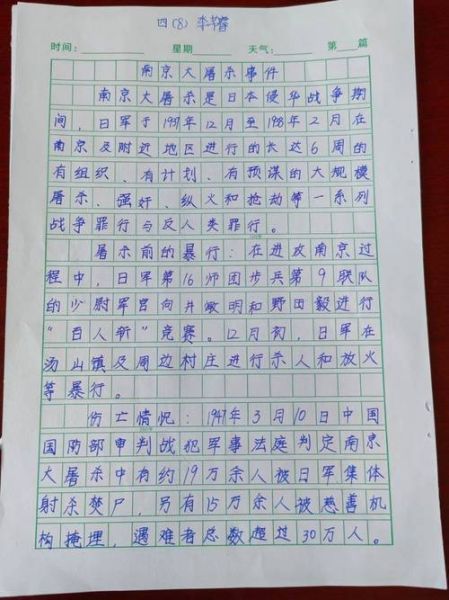 四(8) 李书睿
时间: 星期 天气: 第 篇
南京大屠杀事件
南京大屠杀是日本侵华战争期
间，日军于1937年12月至1938年2月在
南京及附近地区进行的长达6周的
有组织、有计划、有预谋的大规模
屠杀、强奸、纵火和抢劫等一系列
战争罪行与反人类罪行。
屠杀前的暴行：在进攻南京过
程中，日军第16师团步兵第9联队
的少尉军官向井敏明和野田毅进行
“百人斩”竞赛。12月初，日军在
汤山镇及周边村庄进行杀人和放火
等暴行。
伤亡情况：1947年3月10日中国
国防部审判战犯军事法庭判定南京
大屠杀中有约19万余人被日军集体
射杀焚尸，另有15万余人被慈善机
构掩埋，遇难者总数超过30万人。